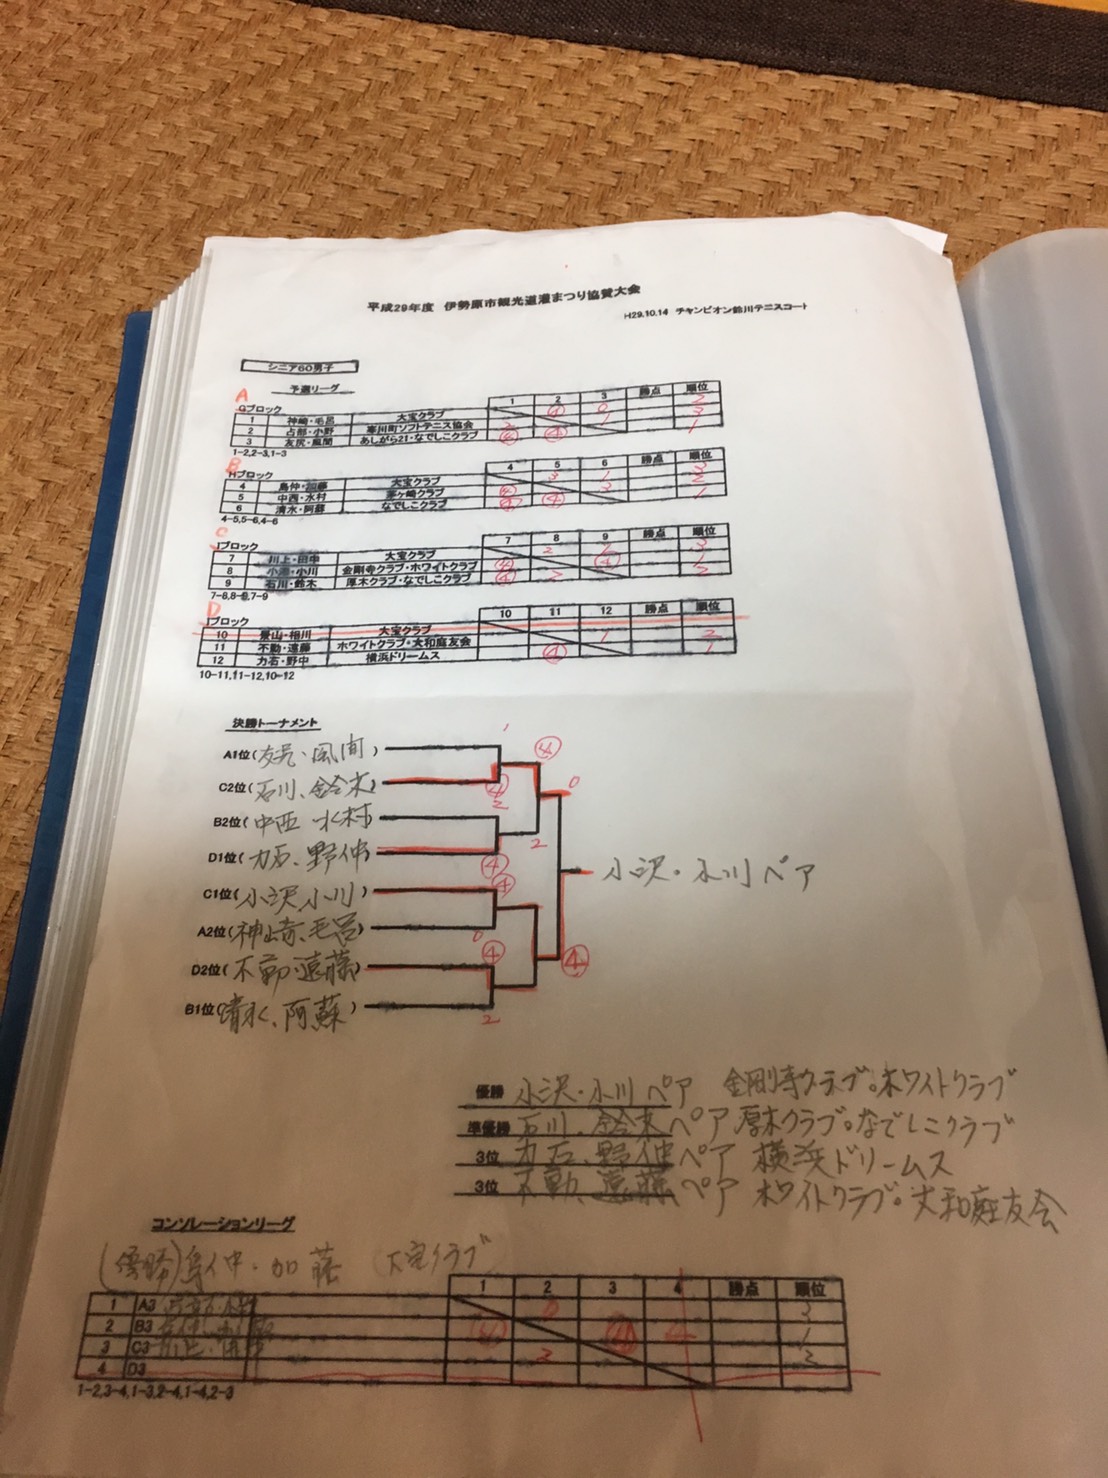 平成29年度 伊勢原市観光道灌まつり協賛大会
H29.10.14 チャンピオン鈴川テニスコート
シニア60男子
予選リーグ
A
Gブロック 1 2 3 勝点 順位
1 神崎・毛呂 大宝クラブ ④ 0 2
2 占部・小野 寒川町ソフトテニス協会 2 1 3
3 友尻・風間 あしがら21・なでしこクラブ ④ ④ 1
1-2,2-3,1-3
B
Hブロック 4 5 6 勝点 順位
4 鳥仲・加藤 大宝クラブ 3 1 3
5 中西・水村 茅ヶ崎クラブ ④ 3 2
6 清水・阿蘇 なでしこクラブ ④ ④ 1
4-5,5-6,4-6
C
Iブロック 7 8 9 勝点 順位
7 川上・田中 大宝クラブ 2 3
8 小川 金剛寺クラブ・ホワイトクラブ ④ ④ 1
9 石川・鈴木 厚木クラブ・なでしこクラブ ④ 2 2
7-8,8-9,7-9
D
Jブロック 10 11 12 勝点 順位
10 景山・相川 大宝クラブ
11 不動・遠藤 ホワイトクラブ・大和庭友会 1 2
12 力石・野中 横浜ドリームス ④ 1
10-11,11-12,10-12
決勝トーナメント
A1位( 友尻・風間 ) 1 ④
C2位( 石川、鈴木 ) ④ 0
B2位( 中西 水村 ) 2
D1位( 力石、野仲 ) ④ 2
小沢・小川ペア
C1位( 小沢、小川 ) ④
A2位( 神崎、毛呂 ) 0
D2位( 不動・遠藤 ) ④ ④
B1位( 清水、阿蘇 ) 2
優勝 小沢・小川ペア 金剛寺クラブ。ホワイトクラブ
準優勝 石川、鈴木ペア 厚木クラブ。なでしこクラブ
3位 力石、野仲ペア 横浜ドリームス
3位 不動、遠藤ペア ホワイトクラブ。大和庭友会
コンソレーションリーグ
(優勝)鳥仲・加藤 (大宝クラブ)
1 2 3 4 勝点 順位
1 A3 0 3
2 B3 ④ ④ 4 1
3 C3 2 2
4 D3
1-2,3-4,1-3,2-4,1-4,2-3